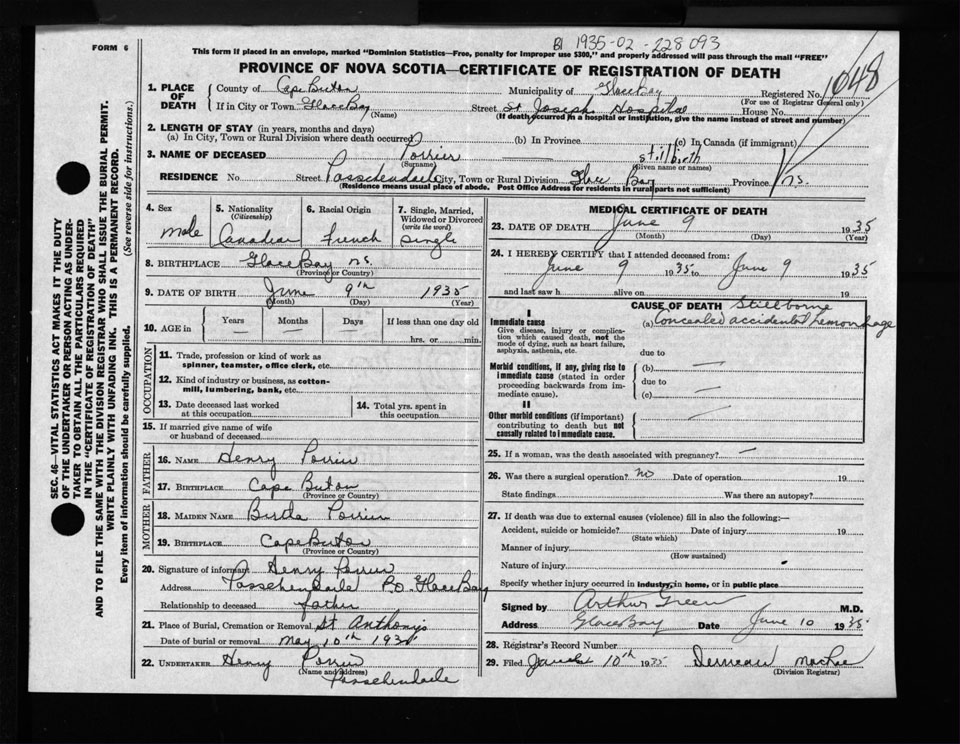 FORM 6
This form if placed in an envelope, marked "Dominion Statistics—Free, penalty for improper use $300," and properly addressed will pass through the mail "FREE"
1935-02-228093
PROVINCE OF NOVA SCOTIA—CERTIFICATE OF REGISTRATION OF DEATH
1048
1. PLACE OF DEATH
County of Cape Breton Municipality of Glace Bay Registered No.
(For use of Registrar General only)
If in City or Town Glace Bay (Name) Street St Joseph Hospital House No.
(If death occurred in a hospital or institution, give the name instead of street and number)
2. LENGTH OF STAY (in years, months and days)
(a) In City, Town or Rural Division where death occurred (b) In Province (c) In Canada (if immigrant)
3. NAME OF DECEASED Porrier (Surname) stillbirth (Given name or names)
RESIDENCE No. Street Passchendaele City, Town or Rural Division Glace Bay Province N.S.
(Residence means usual place of abode. Post Office Address for residents in rural parts not sufficient)
4. Sex male
5. Nationality (Citizenship) Canadian
6. Racial Origin French
7. Single, Married, Widowed or Divorced (write the word) Single
8. BIRTHPLACE Glace Bay N.S.
(Province or Country)
9. DATE OF BIRTH June 9th 1935
(Month) (Day) (Year)
10. AGE in Years Months Days If less than one day old
hrs. or min.
OCCUPATION
11. Trade, profession or kind of work as spinner, teamster, office clerk, etc.
12. Kind of industry or business, as cotton-mill, lumbering, bank, etc.
13. Date deceased last worked at this occupation
14. Total yrs. spent in this occupation
15. If married give name of wife or husband of deceased
FATHER
16. NAME Henry Porrier
17. BIRTHPLACE Cape Breton
(Province or Country)
MOTHER
18. MAIDEN NAME Bertha Porrier
19. BIRTHPLACE Cape Breton
(Province or Country)
20. Signature of informant Henry Porrier
Address Passchendaele P.O. Glace Bay
Relationship to deceased father
21. Place of Burial, Cremation or Removal St Anthonys
Date of burial or removal May 10th 1935
22. UNDERTAKER Henry Porrier
(Name and address)
Passchendaele
MEDICAL CERTIFICATE OF DEATH
23. DATE OF DEATH June 9 1935
(Month) (Day) (Year)
24. I HEREBY CERTIFY that I attended deceased from:
June 9 1935 to June 9 1935
and last saw h alive on 19
CAUSE OF DEATH Stillborne
I
Immediate cause
Give disease, injury or complication which caused death, not the mode of dying, such as heart failure, asphyxia, asthenia, etc.
(a) Concealed accidental hemorrhage
due to
Morbid conditions, if any, giving rise to immediate cause (stated in order proceeding backwards from immediate cause).
(b)
due to
(c)
II
Other morbid conditions (if important) contributing to death but not causally related to immediate cause.
25. If a woman, was the death associated with pregnancy?
26. Was there a surgical operation? No Date of operation 19
State findings Was there an autopsy?
27. If death was due to external causes (violence) fill in also the following:—
Accident, suicide or homicide? Date of injury 19
(State which)
Manner of injury
(How sustained)
Nature of injury
Specify whether injury occurred in industry, in home, or in public place
Signed by Arthur Green M.D.
Address Glace Bay Date June 10 1935
28. Registrar's Record Number
29. Filed 10th 1935 MacRae
(Division Registrar)
SEC. 46—VITAL STATISTICS ACT MAKES IT THE DUTY
OF THE UNDERTAKER OR PERSON ACTING AS UNDER-
TAKER TO OBTAIN ALL THE PARTICULARS REQUIRED
IN THE "CERTIFICATE OF REGISTRATION OF DEATH"
AND TO FILE THE SAME WITH THE DIVISION REGISTRAR WHO SHALL ISSUE THE BURIAL PERMIT.
WRITE PLAINLY WITH UNFADING INK. THIS IS A PERMANENT RECORD.
Every item of information should be carefully supplied. (See reverse side for instructions.)